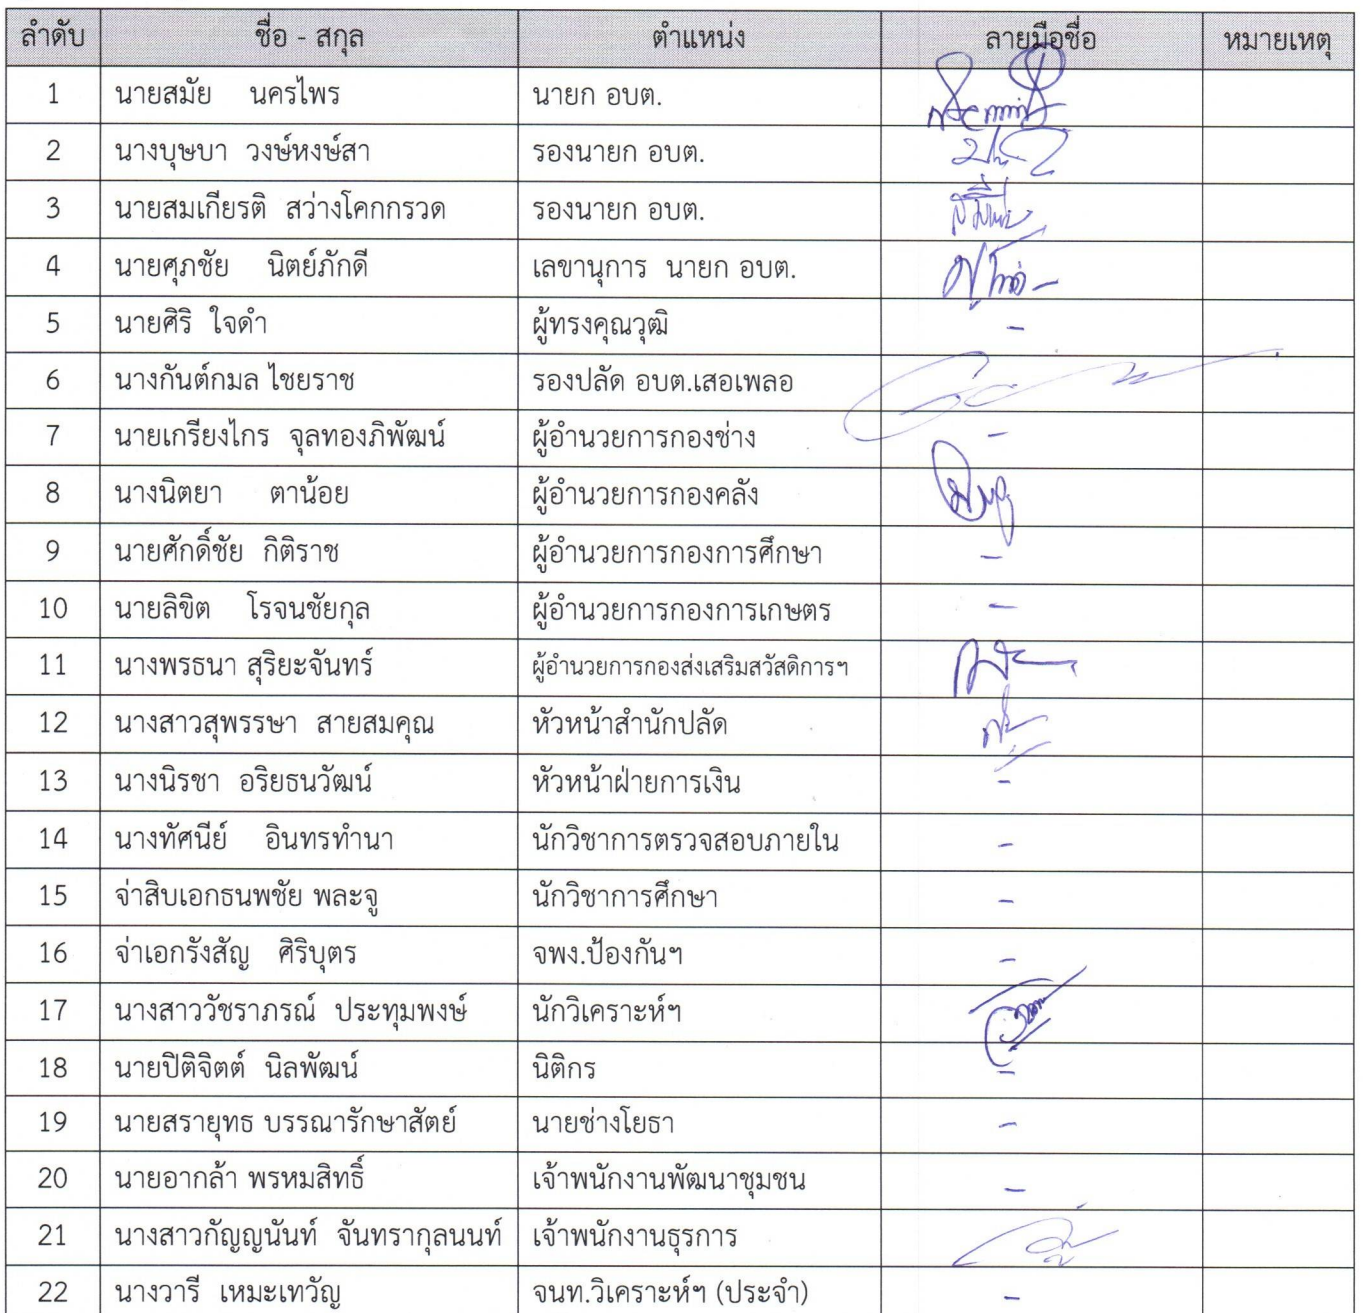 ลำดับ ชื่อ - สกุล ตำแหน่ง ลายมือชื่อ หมายเหตุ
1 นายสมัย นครไพร นายก อบต.
2 นางบุษบา วงษ์หงษ์สา รองนายก อบต.
3 นายสมเกียรติ สว่างโคกกรวด รองนายก อบต.
4 นายศุภชัย นิตย์ภักดี เลขานุการ นายก อบต.
5 นายศิริ ใจดำ ผู้ทรงคุณวุฒิ -
6 นางกันต์กมล ไชยราช รองปลัด อบต.เสอเพลอ
7 นายเกรียงไกร จุลทองภิพัฒน์ ผู้อำนวยการกองช่าง -
8 นางนิตยา ตาน้อย ผู้อำนวยการกองคลัง
9 นายศักดิ์ชัย กิติราช ผู้อำนวยการกองการศึกษา -
10 นายลิขิต โรจนชัยกุล ผู้อำนวยการกองการเกษตร -
11 นางพรธนา สุริยะจันทร์ ผู้อำนวยการกองส่งเสริมสวัสดิการฯ
12 นางสาวสุพรรษา สายสมคุณ หัวหน้าสำนักปลัด
13 นางนิรชา อริยธนวัฒน์ หัวหน้าฝ่ายการเงิน -
14 นางทัศนีย์ อินทรทำนา นักวิชาการตรวจสอบภายใน -
15 จ่าสิบเอกธนพชัย พละจู นักวิชาการศึกษา -
16 จ่าเอกรังสัญ ศิริบุตร จพง.ป้องกันฯ -
17 นางสาววัชราภรณ์ ประทุมพงษ์ นักวิเคราะห์ฯ
18 นายปิติจิตต์ นิลพัฒน์ นิติกร -
19 นายสรายุทธ บรรณารักษาสัตย์ นายช่างโยธา -
20 นายอากล้า พรหมสิทธิ์ เจ้าพนักงานพัฒนาชุมชน -
21 นางสาวกัญญนันท์ จันทรากุลนนท์ เจ้าพนักงานธุรการ
22 นางวารี เหมะเทวัญ จนท.วิเคราะห์ฯ (ประจำ) -